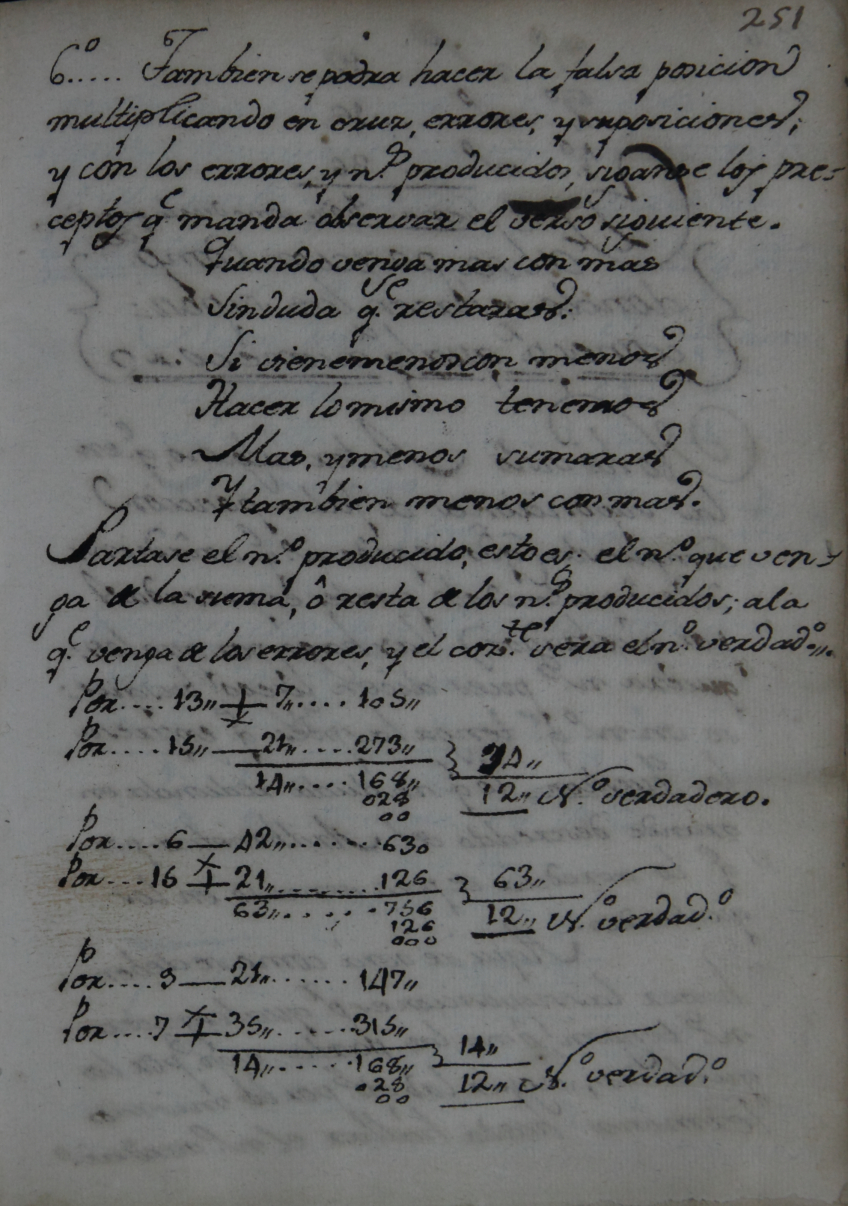 251
6º..... Tambien se podra hacer la falsa posicion
multiplicando en cruz, errores, y suposiciones;
y con los errores, y n.ˢ producidos, siganse los pre-
ceptos q.ᵉ manda observar el verso siguiente.
Quando venga mas con mas
Sinduda q.ᵉ restaras:
Si viene menos con menos
Hacer lo mismo tenemos
Mas, y menos sumaras
Y tambien menos con mas.
Partase el n.º producido, esto es el n.º que ven-
ga de la suma, ô resta de los n.ˢ producidos; a la
q.ᵉ venga de los errores, y el coz.ᵗᵉ sera el n.º verdad.º,,.
Por.... 13,, + 7,,.... 105,,
Por.... 15,, — 21,,.... 273,,
14,,.... 168,, } 14,,
028 12,, N.º verdadero.
00
Por.... 6 — 42,,....... 630
Por.... 16 + 21,,....... 126 } 63,,
63,,...... 756 12,, N.º verdad.º
126
000
Por.... 9 — 21,,..... 147,,
Por.... 7 + 35,,...... 315,,
14,,..... 168,, } 14,,
028 12,, N.º verdad.º
00